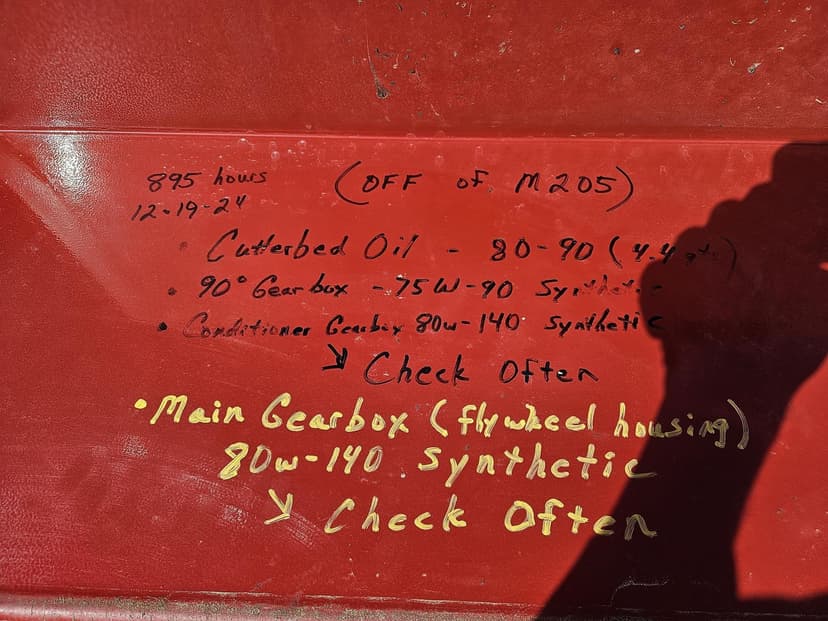 895 hours (OFF of M205)
12-19-24
• Cutterbed Oil - 80-90 (4.4 qts)
• 90° Gear box - 75W-90 Synthetic
• Conditioner Gearbox 80w-140 Synthetic
↘ Check Often
• Main Gearbox (flywheel housing)
80w-140 Synthetic
↘ Check Often